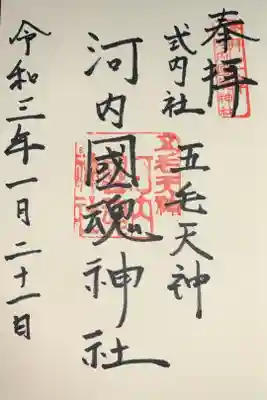 奉拝
式内社 五毛天神
河内國魂神社
令和三年一月二十一日